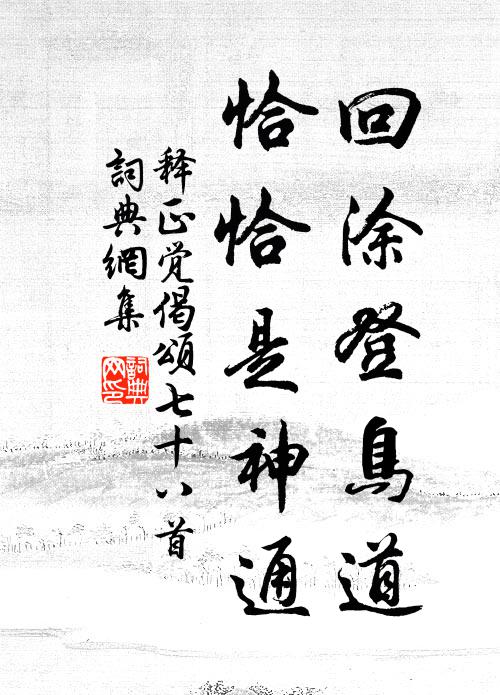 回涂登鳥道
恰恰是神通
释正觉偈頌七十八首
詞典網集
詞典
网印